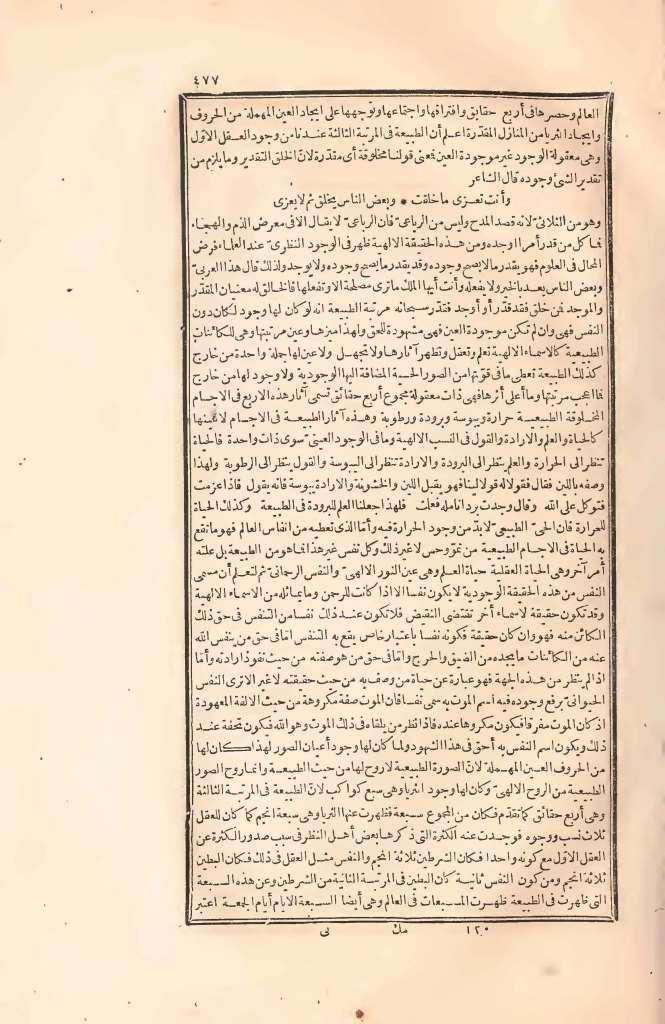 ٤٧٧
العالم وحصرها فى أربع حقائق وافتراقها واجتماعها وتوجهها على ايجاد العين المهملة من الحروف
وايجاد الثريا من المنازل المقدّرة اعلم أن الطبيعة فى المرتبة الثالثة عندنا من وجود العقل الاوّل
وهى معقولة الوجود غير موجودة العين فمعنى قولنا مخلوقة أى مقدرة لانّ الخلق التقدير وما يلزم من
تقدير الشئ وجوده قال الشاعر
ولأنت تفرى ما خلقت * وبعض الناس يخلق ثم لا يفرى
وهو من الثلاثىّ لانه قصد المدح وليس من الرباعىّ فان الرباعىّ لا يقال الا فى معرض الذم والهجاء
فما كل من قدر أمرا أوجده ومن هذه الحقيقة الالهية ظهر فى الوجود النظرى عند العلماء فرض
المحال فى العلوم فهو يقدر ما لا يصح وجوده وقد يقدر ما يصح وجوده ولا يوجد ولذلك قال هذا العربىّ
وبعض الناس يعد بالخير ولا يفعله وأنت أيها الملك ما ترى مصلحة الا وتفعلها فالخالق له معنيان المقدّر
والموجد فمن خلق فقد قدّر أو أوجد فقدّر سبحانه مرتبة الطبيعة انه لو كان لها وجود لكان دون
النفس فهى وان لم تكن موجودة العين فهى مشهودة للحق ولهذا ميزها وعين مرتبتها وهى للكائنات
الطبيعية كالاسماء الالهية تعلم وتعقل وتظهر آثارها ولا تجهل ولا عين لها جملة واحدة من خارج
كذلك الطبيعة تعطى ما فى قوّتها من الصور الحسية المضافة اليها الوجودية ولا وجود لها من خارج
فما أعجب مرتبتها وما أعلى أثرها فهى ذات معقولة مجموع أربع حقائق تسمى آثار هذه الاربع فى الاجسام
المخلوقة الطبيعية حرارة ويبوسة وبرودة ورطوبة وهذه آثار الطبيعة فى الاجسام لا عينها
كالحياة والعلم والارادة والقول فى النسب الالهية وما فى الوجود العينىّ سوى ذات واحدة فالحياة
تنظر الى الحرارة والعلم ينظر الى البرودة والارادة تنظر الى اليبوسة والقول ينظر الى الرطوبة ولهذا
وصفه باللين فقال فقولا له قولا لينا فهو يقبل اللين والخشونة والارادة يبوسة فانه يقول فاذا عزمت
فتوكل على الله وقال وجدت برد أنامله فعلمت فلهذا جعلنا العلم للبرودة فى الطبيعة وكذلك الحياة
للحرارة فان الحىّ الطبيعىّ لا بدّ من وجود الحرارة فيه وأما الذى تعطيه من أنفاس العالم فهو ما تقع
به الحياة فى الاجسام الطبيعية من نموّ وحس لا غير ذلك وكل نفس غير هذا فما هو من الطبيعة بل علته
أمر آخر وهى الحياة العقلية حياة العلم وهى عين النور الالهىّ والنفس الرحمانىّ ثم لتعلم أن مسمى
النفس من هذه الحقيقة الوجودية لا يكون نفسا الا اذا كانت للرحمن وما يماثله من الاسماء الالهية
وقد تكون حقيقة لأسماء أخر تقتضى النقيض فلا تكون عند ذلك نفسا من التنفس فى حق ذلك
الكائن منه فهو وان كان حقيقة فكونه نفسا باعتبار خاص يقع به التنفس امّا فى حق من ينفس الله
عنه من الكائنات ما يجده من الضيق والحرج وامّا فى حق من هو صفته من حيث نفوذ ارادته وأمّا
اذا لم ينظر من هذه الجهة فهو عبارة عن حياة من وصف به من حيث حقيقته لا غير الا ترى النفس
الحيوانىّ يرفع وجوده فيه اسم الموت به سمى نفسا فان الموت صفة مكروهة من حيث الالفة المعهودة
اذ كان الموت مفرقا فيكون مكروها عنده فاذا نظر من يلقاه فى ذلك الموت وهو الله فيكون تحفة عند
ذلك ويكون اسم النفس به أحق فى هذا الشهود ولما كان لها وجود أعيان الصور لهذا كان لها
من الحروف العين المهملة لانّ الصورة الطبيعية لا روح لها من حيث الطبيعة وانما روح الصور
الطبيعية من الروح الالهىّ وكان لها وجود الثريا وهى سبع كواكب لانّ الطبيعة فى المرتبة الثالثة
وهى أربع حقائق كما تقدّم فكان من المجموع سبعة فظهرت عنها الثريا وهى سبعة أنجم كما كان للعقل
ثلاث نسب ووجوه فوجدت عنه الكثرة التى ذكرها بعض أهل النظر فى سبب صدور الكثرة عن
العقل الاوّل مع كونه واحدا فكان الشرطين ثلاثة أنجم والنفس مثل العقل فى ذلك فكان البطين
ثلاثة أنجم ومن كون النفس ثانية كان البطين فى المرتبة الثانية من الشرطين وعن هذه السبعة
التى ظهرت فى الطبيعة ظهرت المسبعات فى العالم وهى أيضا السبعة الايام أيام الجمعة اعتبر
١٢٠ مك نى